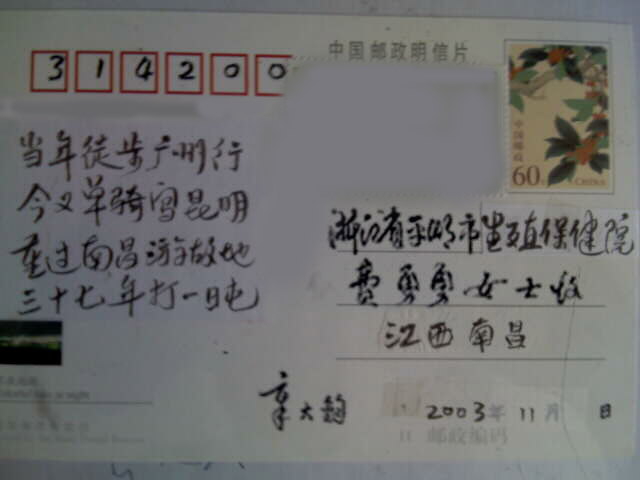 中国邮政明信片
314200
中国邮政
60分
CHINA
当年徒步广州行
今又单骑雪昆明
重过南昌游故地
三十七年打一日屯
浙江省平湖市生殖保健院
费勇勇女士收
江西南昌
章大钧
2003年11月 日
邮政编码